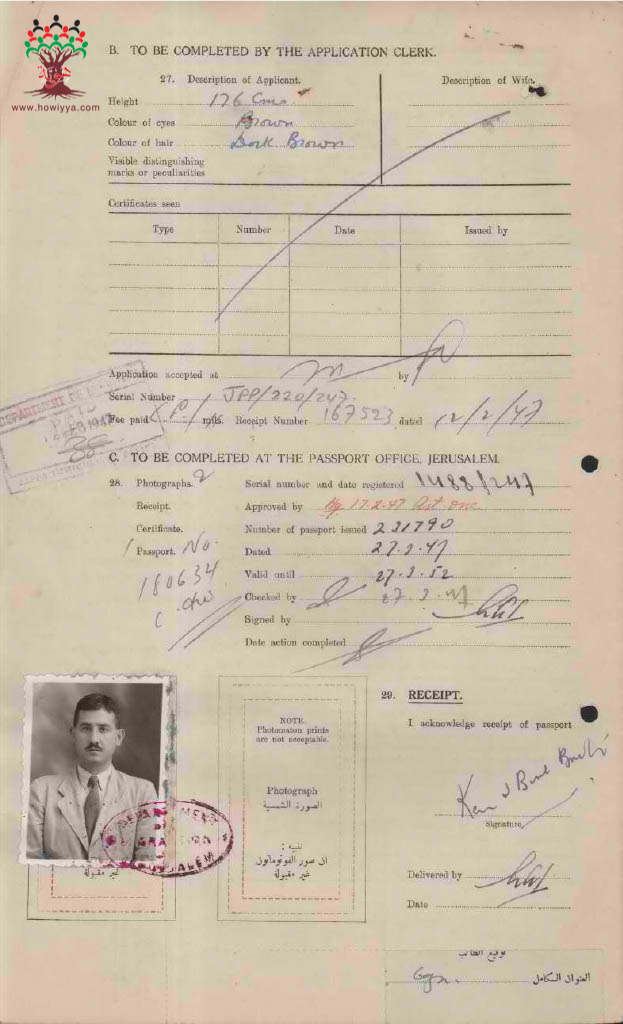 www.howiyya.com
B. TO BE COMPLETED BY THE APPLICATION CLERK.
27. Description of Applicant. Description of Wife.
Height 176 Cms
Colour of eyes Brown
Colour of hair Dark Brown
Visible distinguishing
marks or peculiarities
Certificates seen
Type Number Date Issued by
Application accepted at by
Serial Number JPP/220/247.
Fee paid mils. Receipt Number 167523 dated 12/2/47
C. TO BE COMPLETED AT THE PASSPORT OFFICE, JERUSALEM.
28. Photographs. 2 Serial number and date registered 1488/247
Receipt. Approved by 17.2.47
Certificate. Number of passport issued 231790
1 Passport. No. Dated 27.2.47
180634 Valid until 27.2.52
Checked by 27.2.47
Signed by
Date action completed
29. RECEIPT.
I acknowledge receipt of passport
Signature
Delivered by
Date
NOTE.
Photomaton prints
are not acceptable.
Photograph
الصورة الشمسية
تنبيه :
ان صور الفوتوماتون
غير مقبولة
غير مقبولة
DEPARTMENT
JERUSALEM
توقيع الطالب
العنوان الكامل